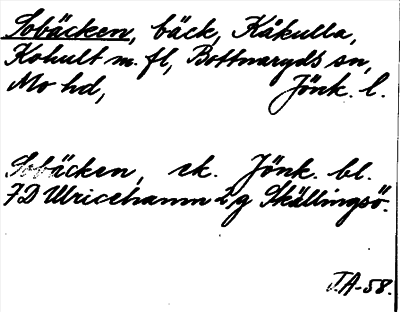 Sobäcken, bäck, Kåkulla,
Kohult m. fl, Bottnaryds sn,
Mo hd, Jönk. l.
Sobäcken, ek. Jönk. bl.
7D Ulricehamn i, g Skällingsö.
J.A-58.